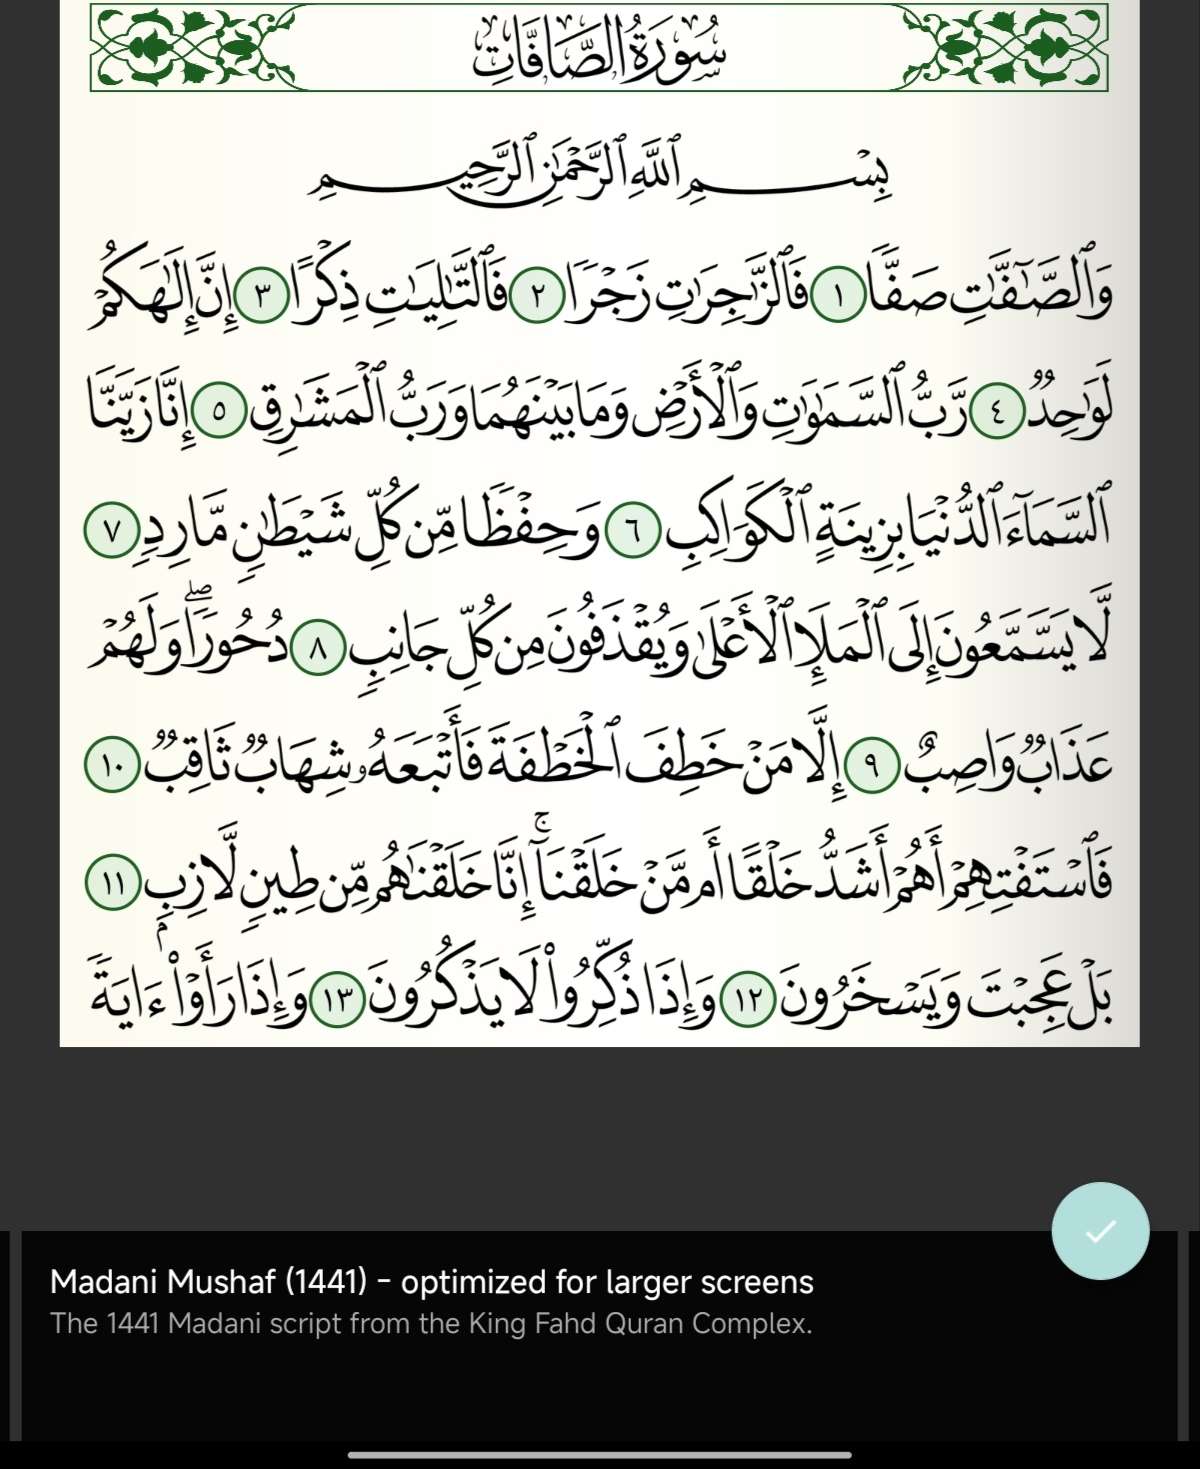 سُورَةُ الصَّافَّاتِ
بِسۡمِ ٱللَّهِ ٱلرَّحۡمَٰنِ ٱلرَّحِيمِ
وَٱلصَّٰٓفَّٰتِ صَفّٗا ١ فَٱلزَّٰجِرَٰتِ زَجۡرٗا ٢ فَٱلتَّٰلِيَٰتِ ذِكۡرًا ٣ إِنَّ إِلَٰهَكُمۡ
لَوَٰحِدٞ ٤ رَّبُّ ٱلسَّمَٰوَٰتِ وَٱلۡأَرۡضِ وَمَا بَيۡنَهُمَا وَرَبُّ ٱلۡمَشَٰرِقِ ٥ إِنَّا زَيَّنَّا
ٱلسَّمَآءَ ٱلدُّنۡيَا بِزِينَةٍ ٱلۡكَوَاكِبِ ٦ وَحِفۡظٗا مِّن كُلِّ شَيۡطَٰنٖ مَّارِدٖ ٧
لَّا يَسَّمَّعُونَ إِلَى ٱلۡمَلَإِ ٱلۡأَعۡلَىٰ وَيُقۡذَفُونَ مِن كُلِّ جَانِبٖ ٨ دُحُورٗاۖ وَلَهُمۡ
عَذَابٞ وَاصِبٌ ٩ إِلَّا مَنۡ خَطِفَ ٱلۡخَطۡفَةَ فَأَتۡبَعَهُۥ شِهَابٞ ثَاقِبٞ ١٠
فَٱسۡتَفۡتِهِمۡ أَهُمۡ أَشَدُّ خَلۡقًا أَم مَّنۡ خَلَقۡنَآۚ إِنَّا خَلَقۡنَٰهُم مِّن طِينٖ لَّازِبِۭ ١١
بَلۡ عَجِبۡتَ وَيَسۡخَرُونَ ١٢ وَإِذَا ذُكِّرُواْ لَا يَذۡكُرُونَ ١٣ وَإِذَا رَأَوۡاْ ءَايَةٗ
Madani Mushaf (1441) - optimized for larger screens
The 1441 Madani script from the King Fahd Quran Complex.